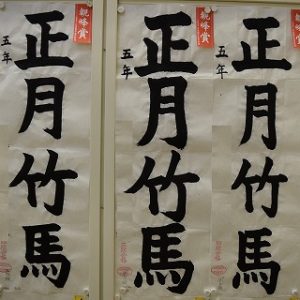 親峰賞
正月竹馬
五年
親峰賞
正月竹馬
五年
正月竹馬
五年